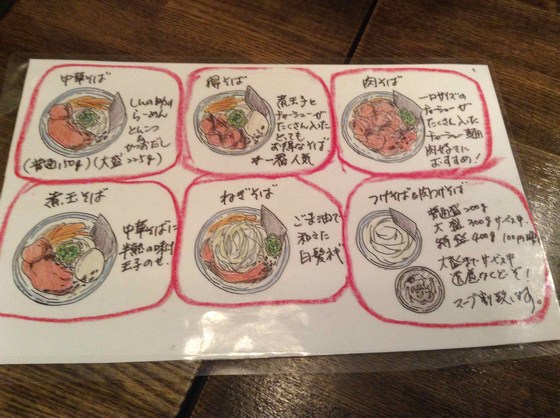 中華そば
しんのめんり
らーめん
とんこつ
&
かつおだし
(普通150g)(大盛225g)
得そば
煮玉子と
チャーシューが
たくさん入った
とっても
お得なそば
*一番人気
肉そば
一口サイズの
チャーシューが
たくさん入った
チャーシュー麺
肉好きに
おすすめ!
煮玉そば
中華そばに
半熟の味付
玉子のせ.
ねぎそば
ごま油で
和えた
白髪ねぎ
つけそば&肉つけそば
普通盛200g
大盛300gサービス中
特盛400g 100円増
大盛までサービス中
遠慮なくどーぞ!
スープ割致します。